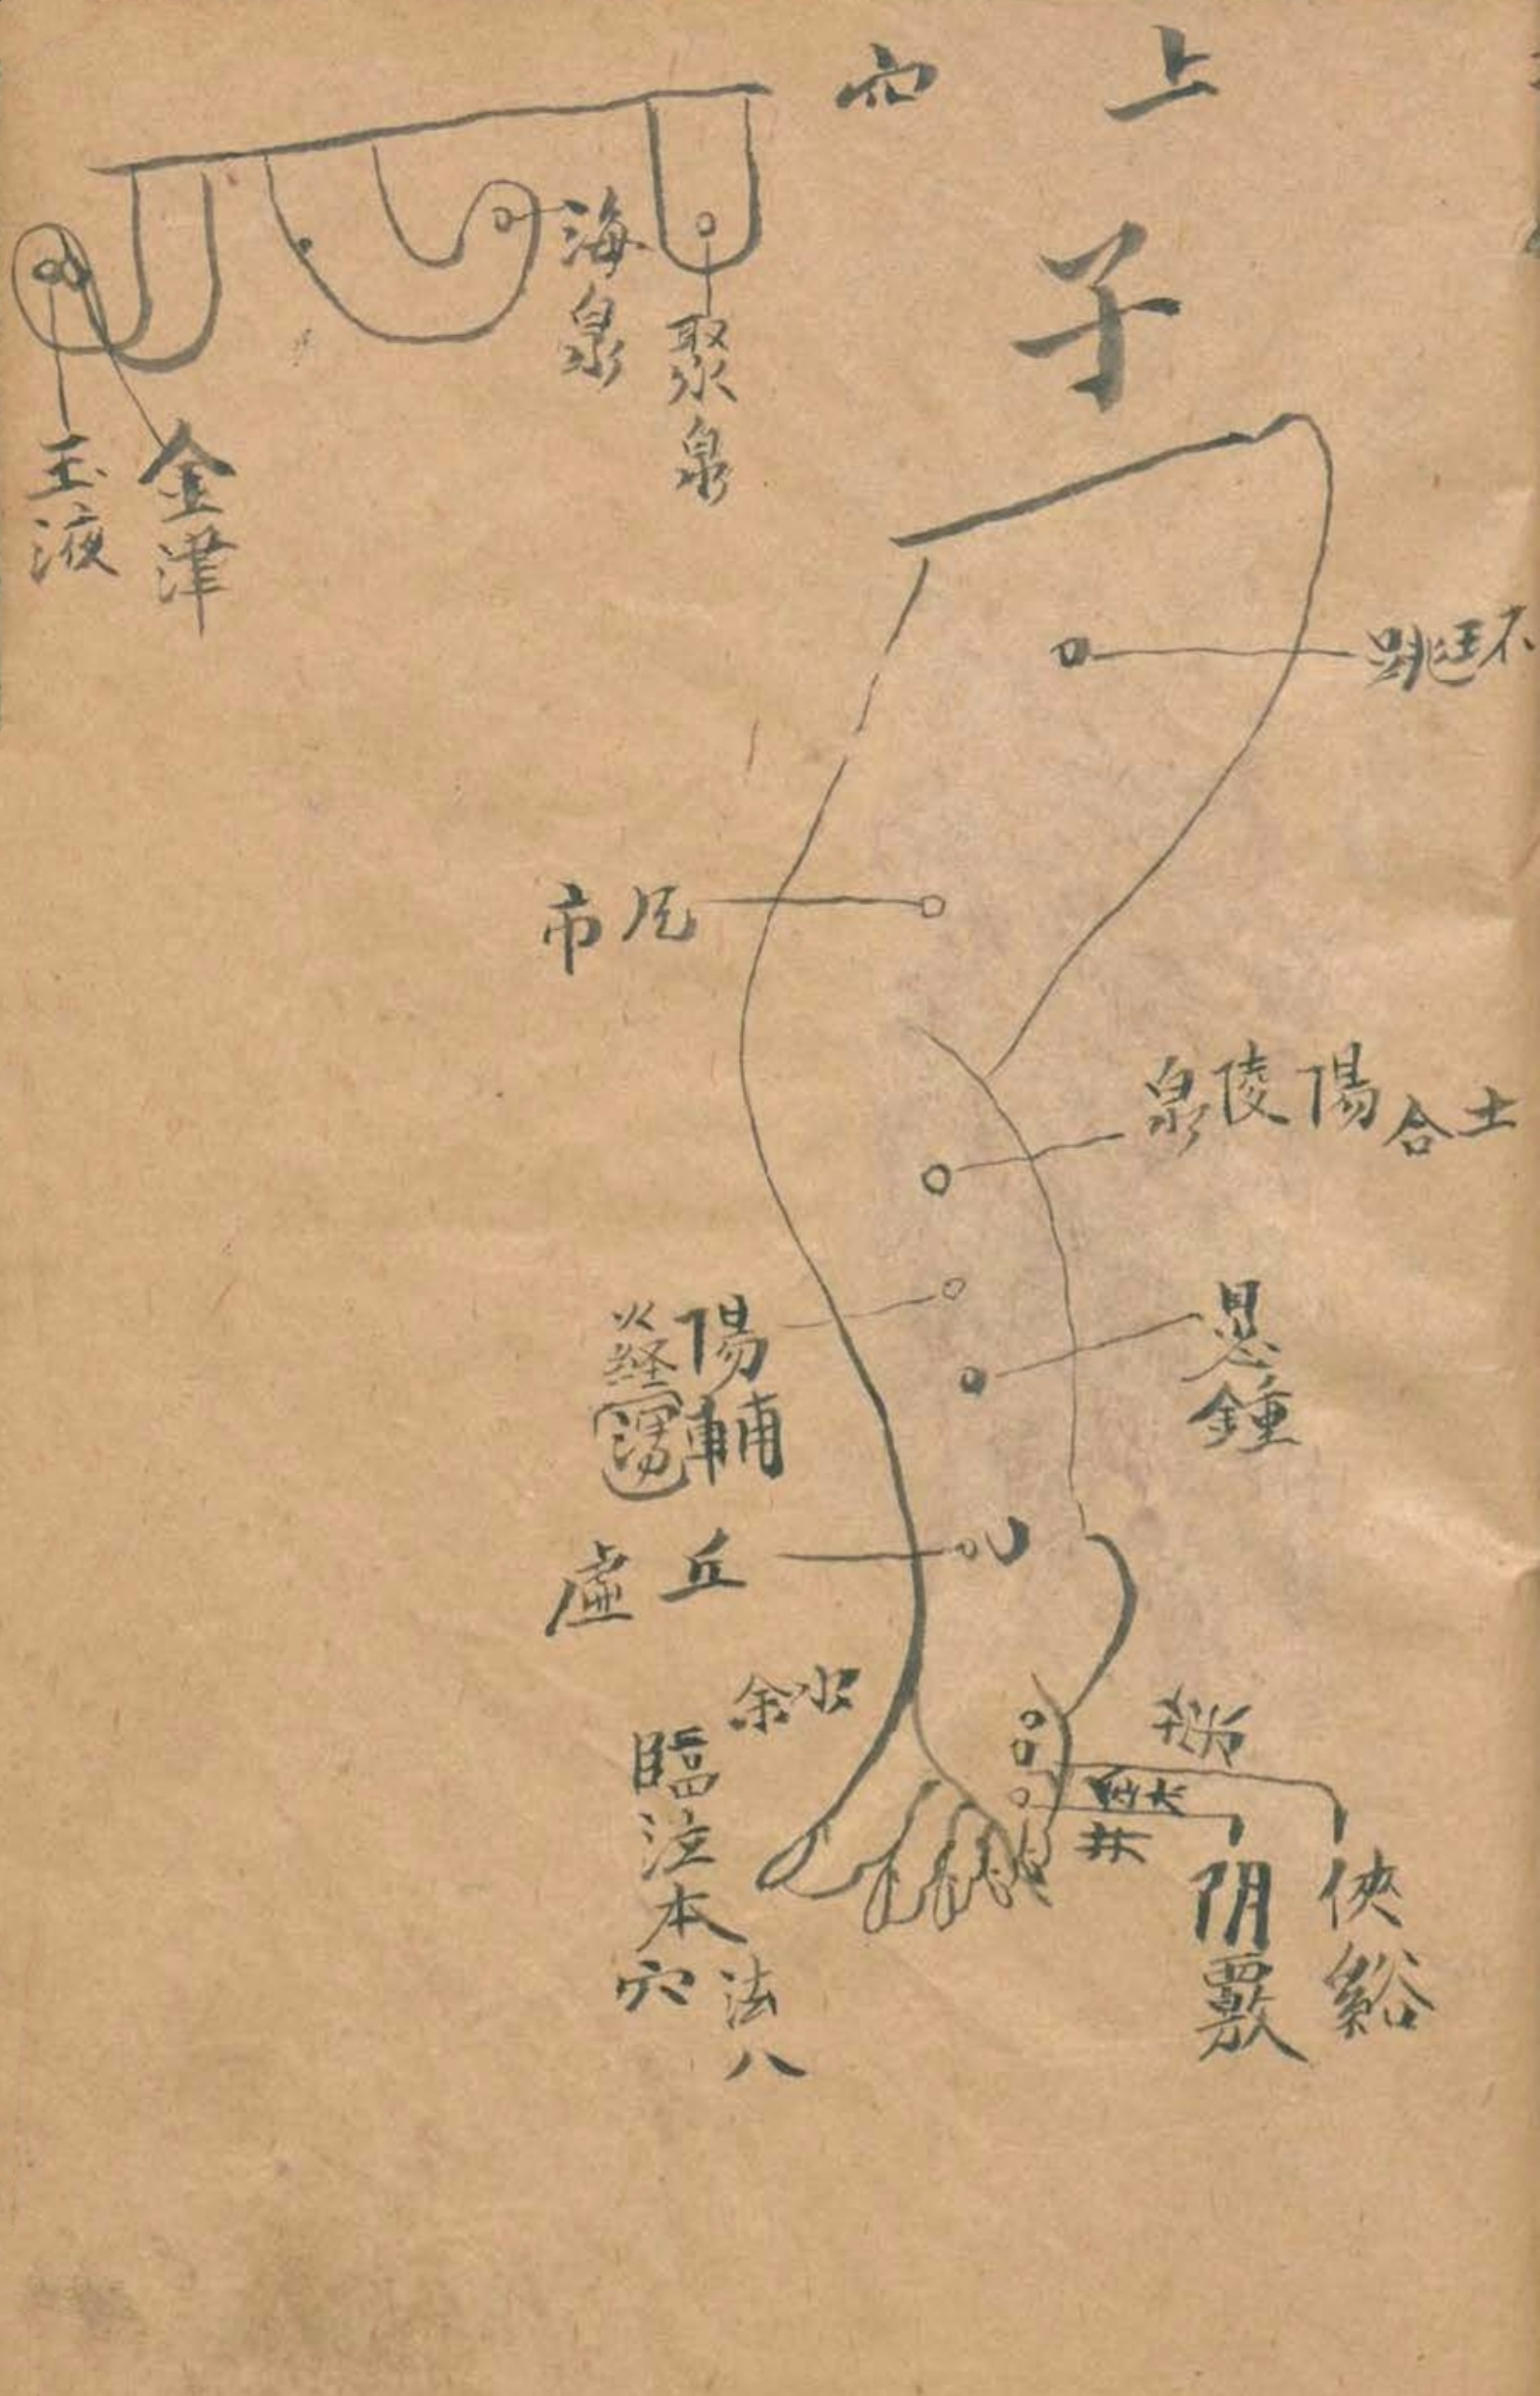 上穴
子
聚泉
海泉
金津
玉液
環跳
風市
土合陽陵泉
懸鍾
陽輔
火経
丘虛
水
臨泣本穴
八法
俠谿
井
阴竅